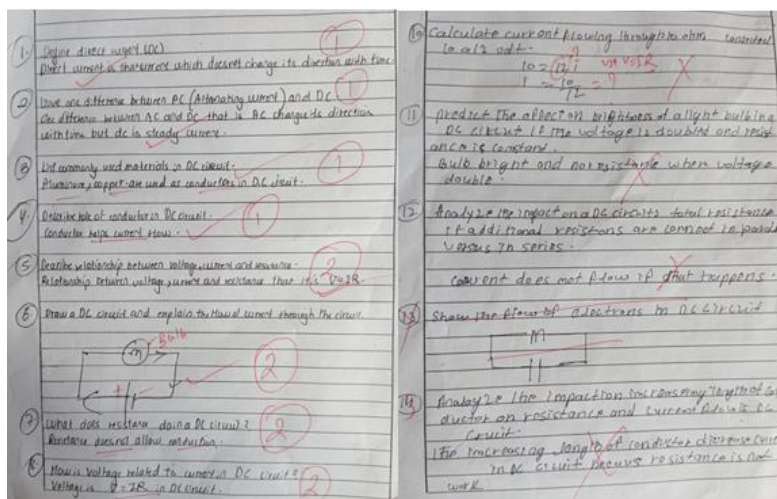 1. Define direct current (DC)
Direct current is that current which doesnot change its direction with time.
1
2 Give one difference between AC (Alternating current) and DC
1
One difference between AC and DC that is AC change its direction
with time but dc is steady current.
3 List commonly used materials in DC circuit.
1
Aluminum, copper are used as conductors in D.C circuit.
4. Describe role of conductor in DC circuit.
1
Conductor helps current flow.
5 Describe relationship between voltage, current and resistance.
3
Relationship between voltage, current and resistance that is V=IR.
6 Draw a DC circuit and explain the flow of current through the circuit.
Bulb
m
+ -
2
7 What does resistance do in a DC circuit?
2
Resistance does not allow conduction.
8 How is voltage related to current in DC circuit?
Voltage is V=IR in DC circuit.
2
10 Calculate current flowing through 10 ohm connected
to a 12 volt.
10 = 12 i
? use V=IR
1 = 10/12 = ?
11 predict The affect on brightness of a light bulb in
DC circuit if the voltage is doubled and resist
ance is constant.
Bulb bright and no resistance when voltage
double.
12 Analyze the impact on a DC circuits total resistance
if additional resistors are connect in
versus in series.
Current does not flow if that happens.
13 Show the flow of electrons in DC Circuit
M
14 Analayze the impact increasing length of
ductor on resistance and current flow is DC
Crucit.
The increasing length of conductor
in DC circuit resistance is not
work